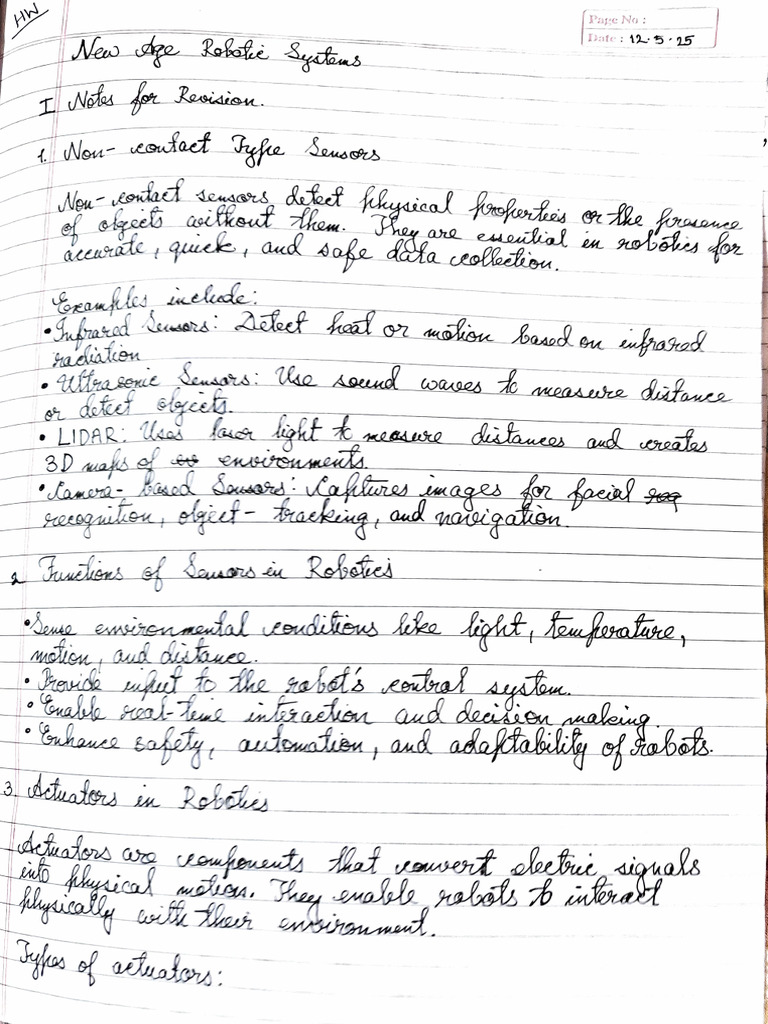 HW
Page No :
Date : 12.5.25
New Age Robotic Systems
I Notes for Revision.
1. Non-contact Type Sensors
Non-contact sensors detect physical properties or the presence
of objects without them. They are essential in robotics for
accurate, quick, and safe data collection.
Examples include:
• Infrared Sensors: Detect heat or motion based on infrared
radiation
• Ultrasonic Sensors: Use sound waves to measure distance
or detect objects.
• LIDAR: Uses laser light to measure distances and creates
3D maps of environments.
• Camera-based Sensors: Captures images for facial
recognition, object-tracking, and navigation.
2 Functions of Sensors in Robotics
• Sense environmental conditions like light, temperature,
motion, and distance.
• Provide input to the robot's control system.
• Enable real-time interaction and decision making.
• Enhance safety, automation, and adaptability of robots.
3. Actuators in Robotics
Actuators are components that convert electric signals
into physical motion. They enable robots to interact
physically with their environment.
Types of actuators: